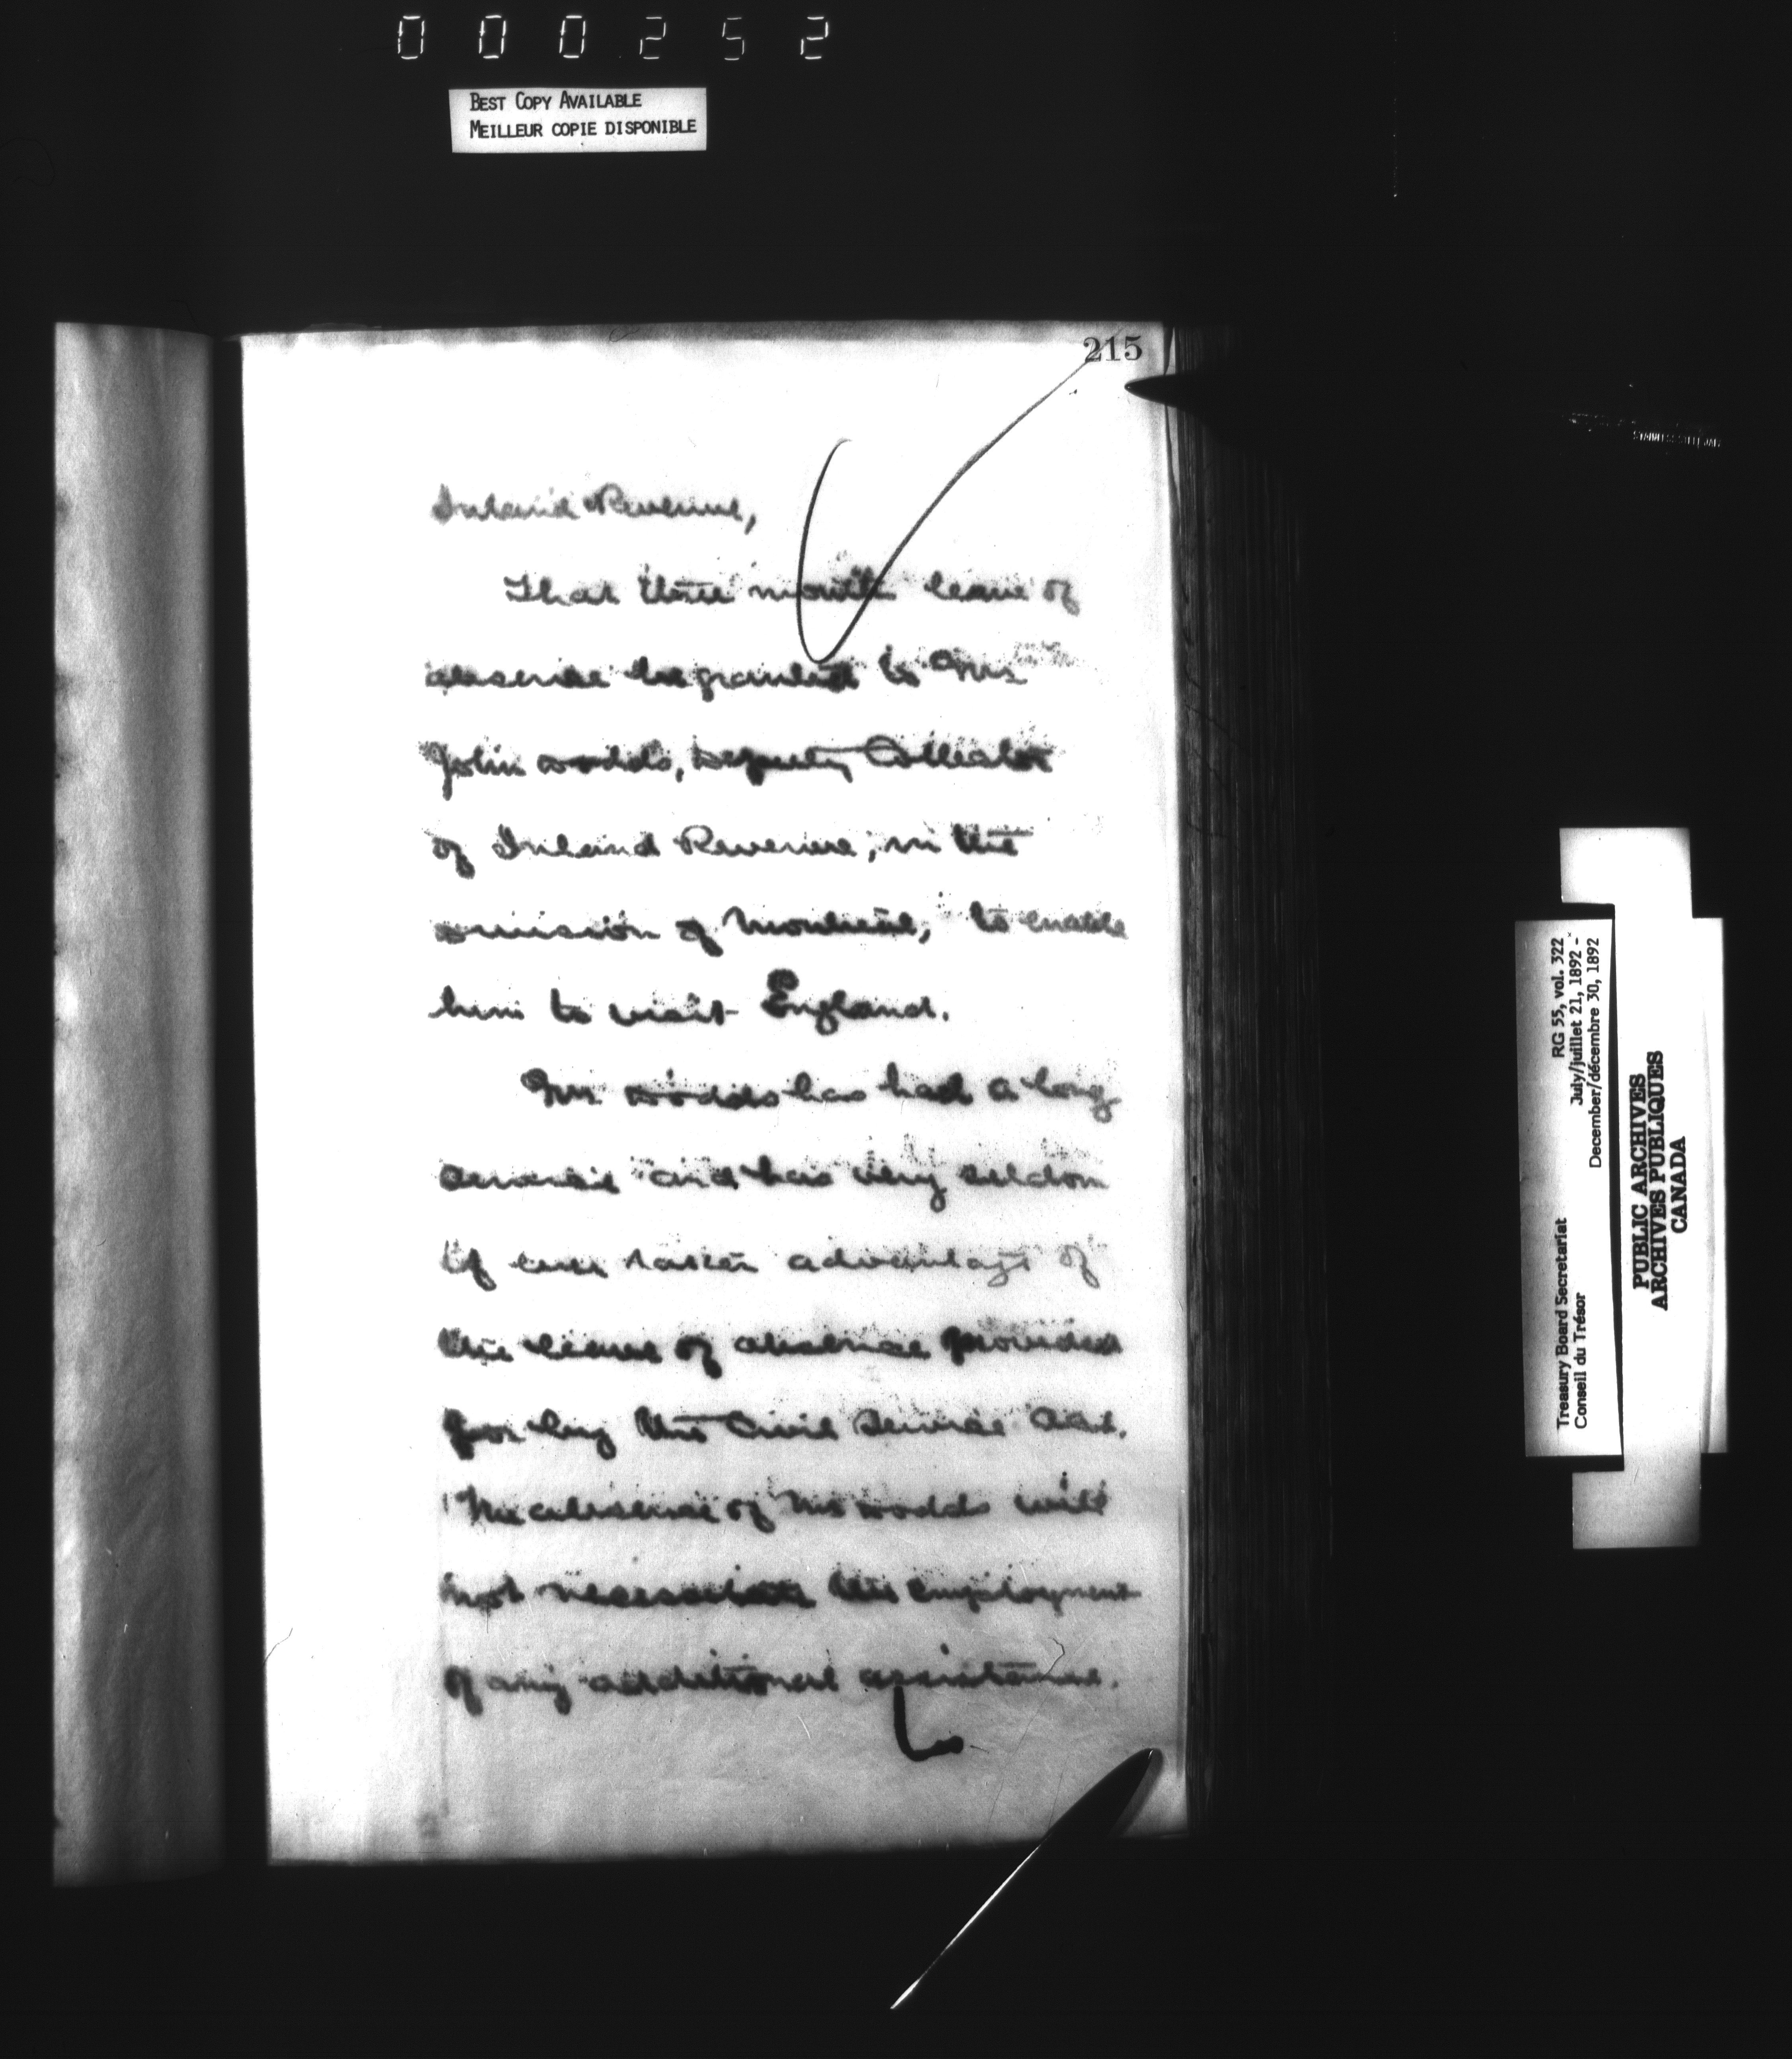 000252
BEST COPY AVAILABLE
MEILLEUR COPIE DISPONIBLE
215
Inland Revenue,
That three months leave of
absence be granted to Mr
John Dodds, Deputy Collector
of Inland Revenue, in the
Division of Montreal, to enable
him to visit England.
Mr. Dodds has had a long
service and has very seldom
if ever taken advantage of
the leave of absence provided
for by the Civil Service Act.
The absence of Mr Dodds will
not necessitate the employment
of any additional assistance.
Treasury Board Secretariat RG 55, vol. 322
Conseil du Trésor July/juillet 21, 1892 -
December/décembre 30, 1892
PUBLIC ARCHIVES
ARCHIVES PUBLIQUES
CANADA